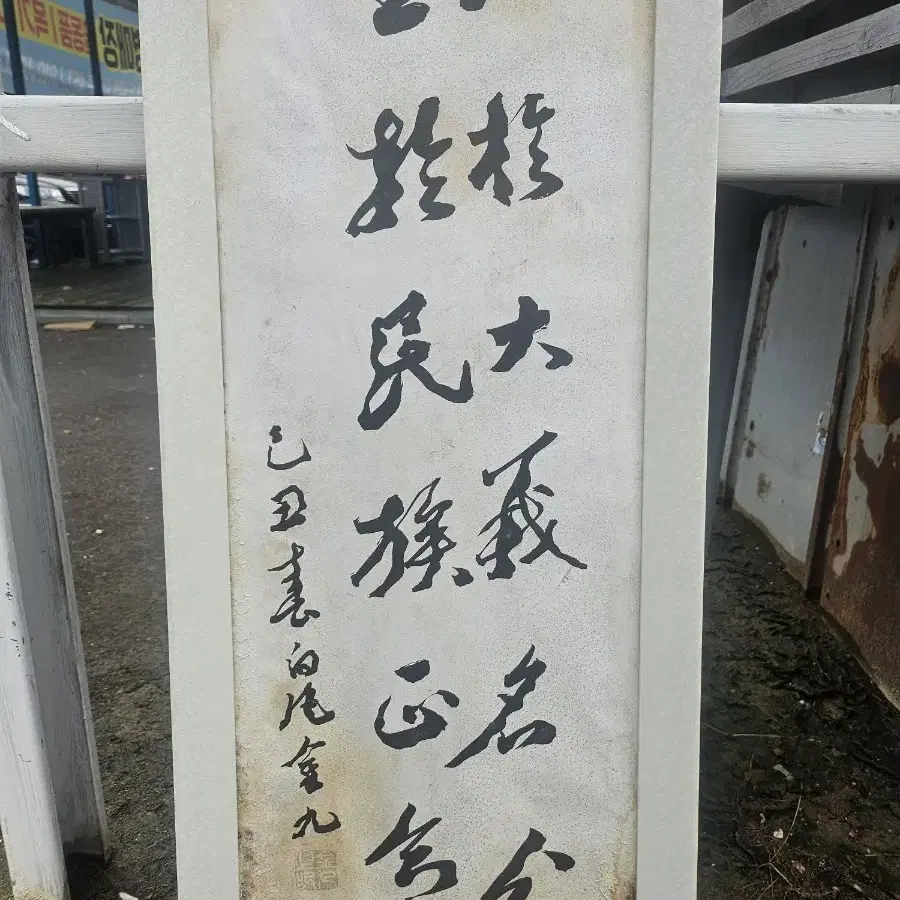 於大義名分
於民族正
己丑春 白凡金九